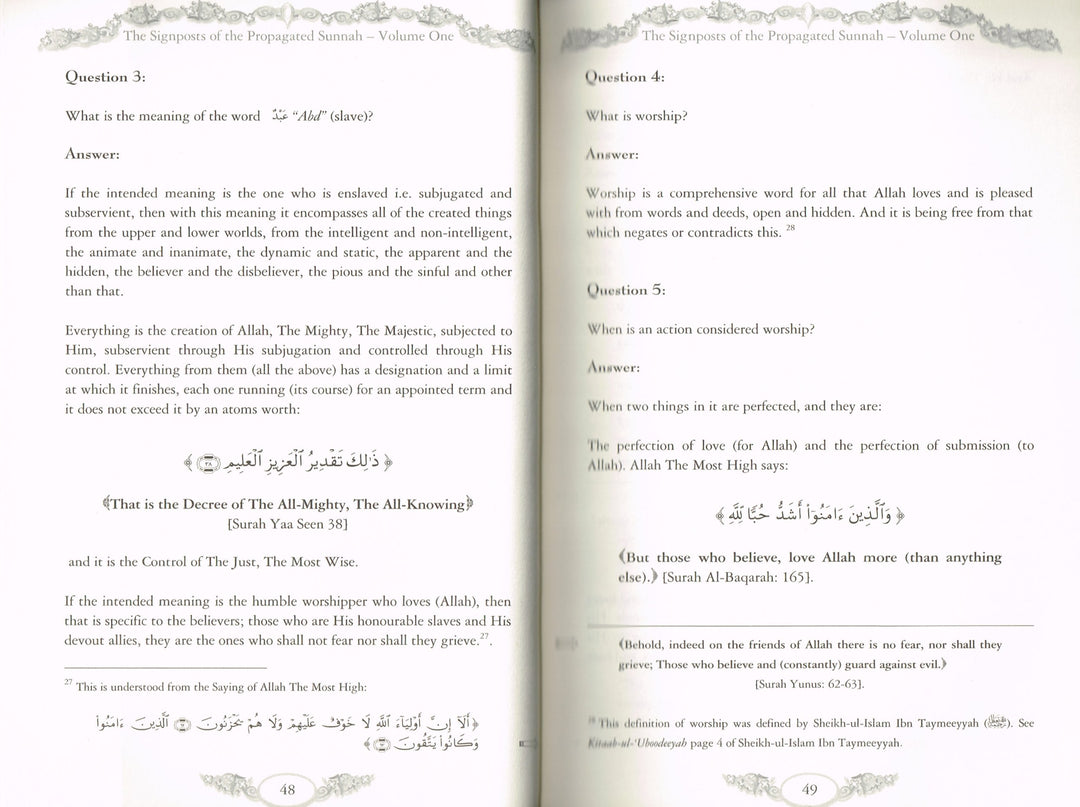 The Signposts of the Propagated Sunnah – Volume One
Question 3:
What is the meaning of the word عَبْدٌ “Abd” (slave)?
Answer:
If the intended meaning is the one who is enslaved i.e. subjugated and
subservient, then with this meaning it encompasses all of the created things
from the upper and lower worlds, from the intelligent and non-intelligent,
the animate and inanimate, the dynamic and static, the apparent and the
hidden, the believer and the disbeliever, the pious and the sinful and other
than that.
Everything is the creation of Allah, The Mighty, The Majestic, subjected to
Him, subservient through His subjugation and controlled through His
control. Everything from them (all the above) has a designation and a limit
at which it finishes, each one running (its course) for an appointed term and
it does not exceed it by an atoms worth:
﴿ ذَٰلِكَ تَقْدِيرُ ٱلْعَزِيزِ ٱلْعَلِيمِ ٣٨ ﴾
﴾That is the Decree of The All-Mighty, The All-Knowing﴿
[Surah Yaa Seen 38]
and it is the Control of The Just, The Most Wise.
If the intended meaning is the humble worshipper who loves (Allah), then
that is specific to the believers; those who are His honourable slaves and His
devout allies, they are the ones who shall not fear nor shall they grieve.27.
27 This is understood from the Saying of Allah The Most High:
﴿ أَلَآ إِنَّ أَوْلِيَآءَ ٱللَّهِ لَا خَوْفٌ عَلَيْهِمْ وَلَا هُمْ يَحْزَنُونَ ٦٢ ٱلَّذِينَ ءَامَنُوا۟
وَكَانُوا۟ يَتَّقُونَ ٦٣ ﴾
48
The Signposts of the Propagated Sunnah – Volume One
Question 4:
What is worship?
Answer:
Worship is a comprehensive word for all that Allah loves and is pleased
with from words and deeds, open and hidden. And it is being free from that
which negates or contradicts this. 28
Question 5:
When is an action considered worship?
Answer:
When two things in it are perfected, and they are:
The perfection of love (for Allah) and the perfection of submission (to
Allah). Allah The Most High says:
﴿ وَٱلَّذِينَ ءَامَنُوٓا۟ أَشَدُّ حُبًّا لِّلَّهِ ﴾
﴾But those who believe, love Allah more (than anything
else).﴿ [Surah Al-Baqarah: 165].
﴾Behold, indeed on the friends of Allah there is no fear, nor shall they
grieve; Those who believe and (constantly) guard against evil.﴿
[Surah Yunus: 62-63].
28 This definition of worship was defined by Sheikh-ul-Islam Ibn Taymeeyyah (). See
Kitaab-ul-‘Uboodeeyah page 4 of Sheikh-ul-Islam Ibn Taymeeyyah.
49